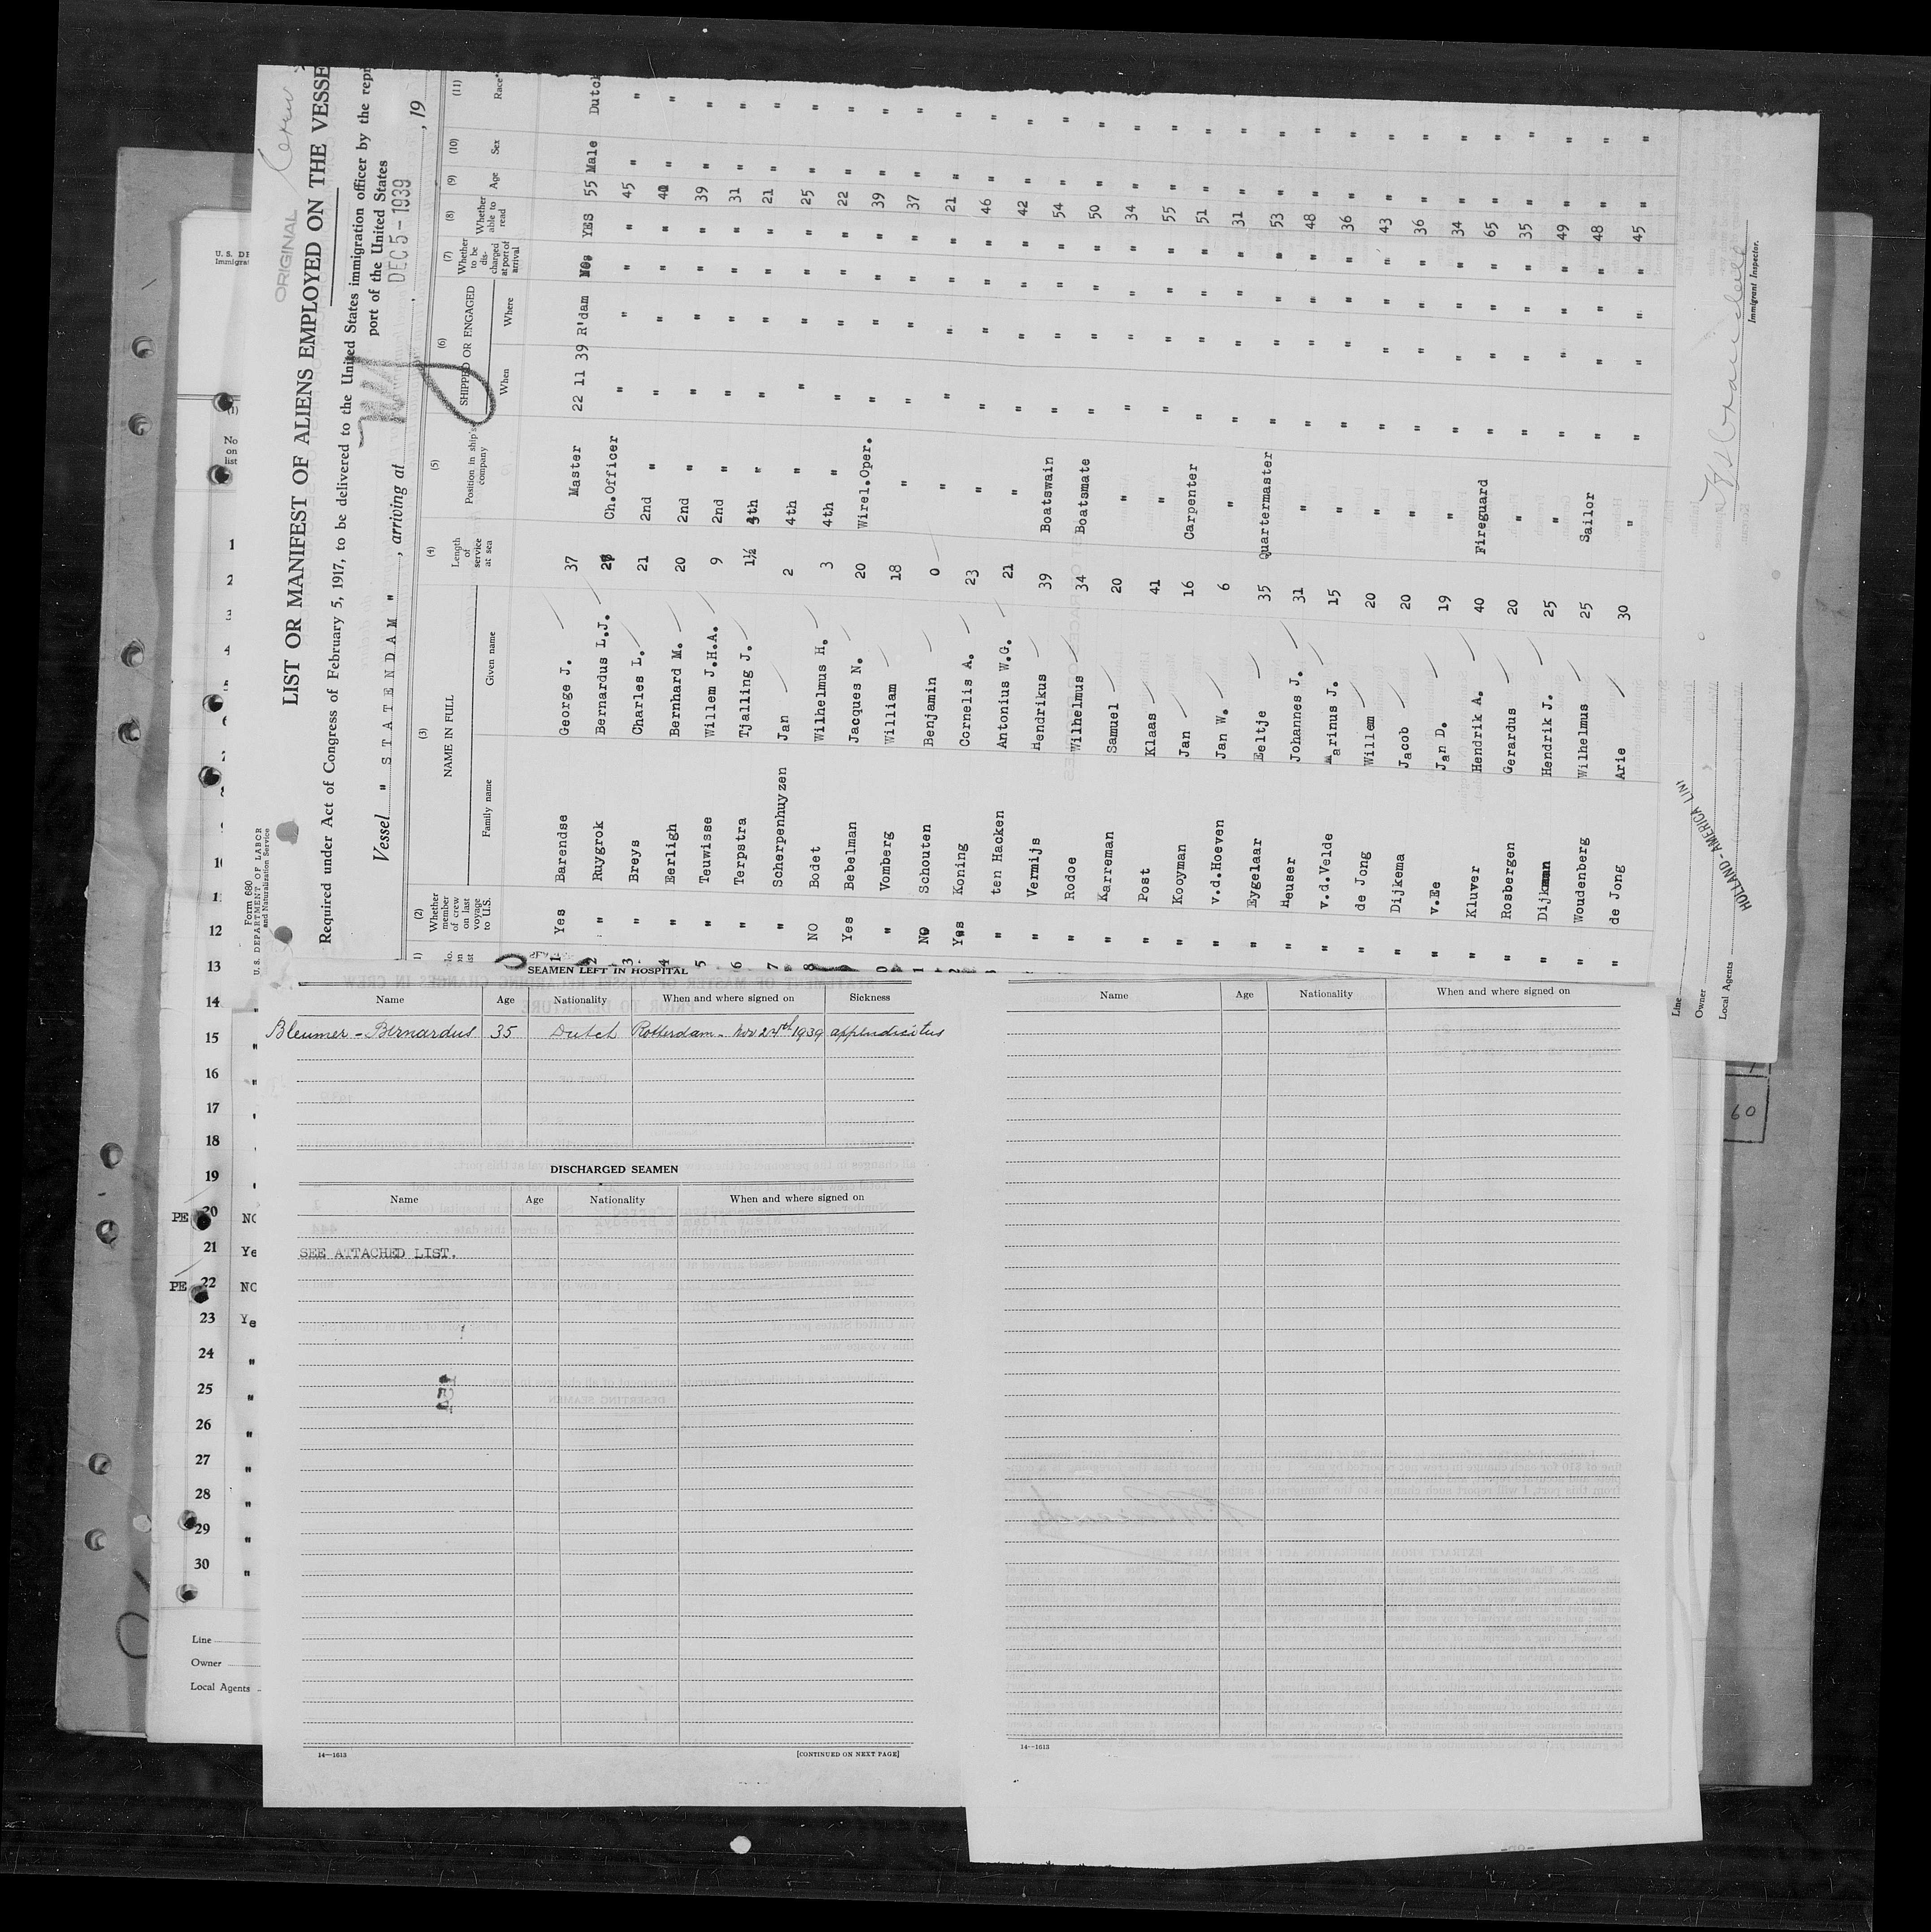 ORIGINAL
Form 680
U. S. DEPARTMENT OF LABOR
and Naturalization Service
LIST OR MANIFEST OF ALIENS EMPLOYED ON THE VESSE
Required under Act of Congress of February 5, 1917, to be delivered to the United States immigration officer by the repr
port of the United States
Vessel " STATENDAM " , arriving at , DEC 5 - 1939 , 19
(2) (3) (4) (5) (6) (7) (8) (9) (10) (11)
Whether member of crew on last voyage to U.S. NAME IN FULL Family name Given name Length of service at sea Position in ship's company SHIPPED OR ENGAGED When Where Whether to be discharged at port of arrival Whether able to read Age Sex Race*
1 Yes Barendse George J. 37 Master 22 11 39 R'dam YES 55 Male Dutch
2 " Ruygrok Bernardus L.J. Ch.Officer " " " " 45 " "
3 " Breys Charles L. 21 2nd " " " " " " "
4 " Eerligh Bernhard M. 20 2nd " " " " " 39 " "
5 " Teuwisse Willem J.H.A. 9 2nd " " " " " 31 " "
6 " Terpstra Tjalling J. 1½ 4th " " " " " 21 " "
7 " Scherpenhuyzen Jan 2 4th " " " " " 25 " "
8 NO Bodet Wilhelmus H. 3 4th " " " " " 22 " "
9 Yes Bebelman Jacques N. 20 Wirel.Oper. " " " " 39 " "
0 " Vomberg William 18 " " " " " 37 " "
1 NO Schouten Benjamin 0 " " " " " 21 " "
2 Yes Koning Cornelis A. 23 " " " " " 46 " "
" ten Hacken Antonius W.G. 21 " " " " " 42 " "
" Vermijs Hendrikus 39 Boatswain " " " " 54 " "
" Rodoe Wilhelmus 34 Boatsmate " " " " 50 " "
" Karreman Samuel 20 " " " " " 34 " "
" Post Klaas 41 " " " " " 55 " "
" Kooyman Jan 16 Carpenter " " " " 51 " "
" v.d.Hoeven Jan W. 6 " " " " " 31 " "
" Eygelaar Eeltje 35 Quartermaster " " " " 53 " "
" Heuser Johannes J. 31 " " " " " 48 " "
" v.d.Velde Marinus J. 15 " " " " " 36 " "
" de Jong Willem 20 " " " " " 43 " "
" Dijkema Jacob 20 " " " " " 36 " "
" v.Ee Jan D. 19 " " " " " 34 " "
" Kluver Hendrik A. 40 Fireguard " " " " 65 " "
" Rosbergen Gerardus 20 " " " " " 35 " "
" Dijkman Hendrik J. 25 " " " " " 49 " "
" Woudenberg Wilhelmus 25 Sailor " " " " 48 " "
" de Jong Arie 30 " " " " " 45 " "
Line
Owner
Local Agents
HOLLAND-AMERICA LINE
Immigrant Inspector.
U. S. DE
Immigrat
(1)
No
on
list
1
2
3
4
6
9
10
11
12
13
14
15 "
16 "
17
18
19
PE 20 NO
21 Ye
PE 22 NO
23 Ye
24 "
25 "
26 "
27 "
28 "
29 "
30 "
Line
Owner
Local Agents
60
SEAMEN LEFT IN HOSPITAL
Name Age Nationality When and where signed on Sickness
Bleumer - Bernardus 35 Dutch Rotterdam - Nov 24th 1939 appendicitus
DISCHARGED SEAMEN
Name Age Nationality When and where signed on
SEE ATTACHED LIST.
14—1613 [CONTINUED ON NEXT PAGE]
Name Age Nationality When and where signed on
14—1613